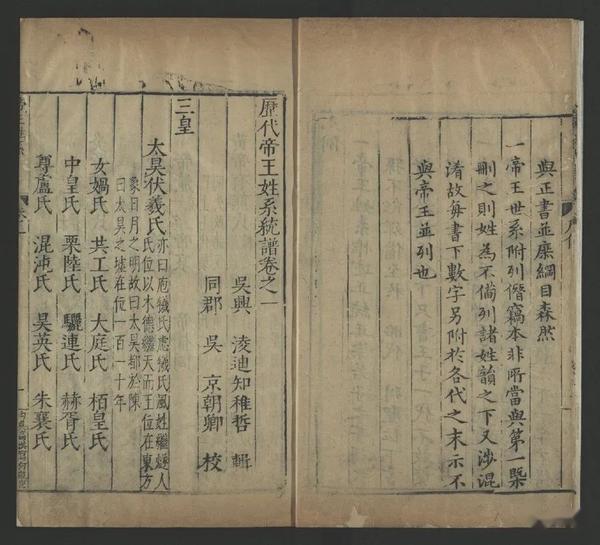 與正書並糜綱目森然
一帝王世系附列僭竊本非所當與第一槩
刪之則姓為不備列諸姓韻之下又涉混
淆故每書下數字另附於各代之末示不
與帝王並列也
歷代帝王姓系統譜卷之一
吳興 淩迪知稚哲 輯
同郡 吳 京朝卿 校
三皇
太昊伏羲氏 亦曰庖犧氏宓犧氏風姓繼燧人
氏位以木德繼天而王位在東方
象日月之明故曰太昊都於陳
曰太昊之墟在位一百一十年
女媧氏 共工氏 大庭氏 栢皇氏
中皇氏 栗陸氏 驪連氏 赫胥氏
尊盧氏 混沌氏 昊英氏 朱襄氏